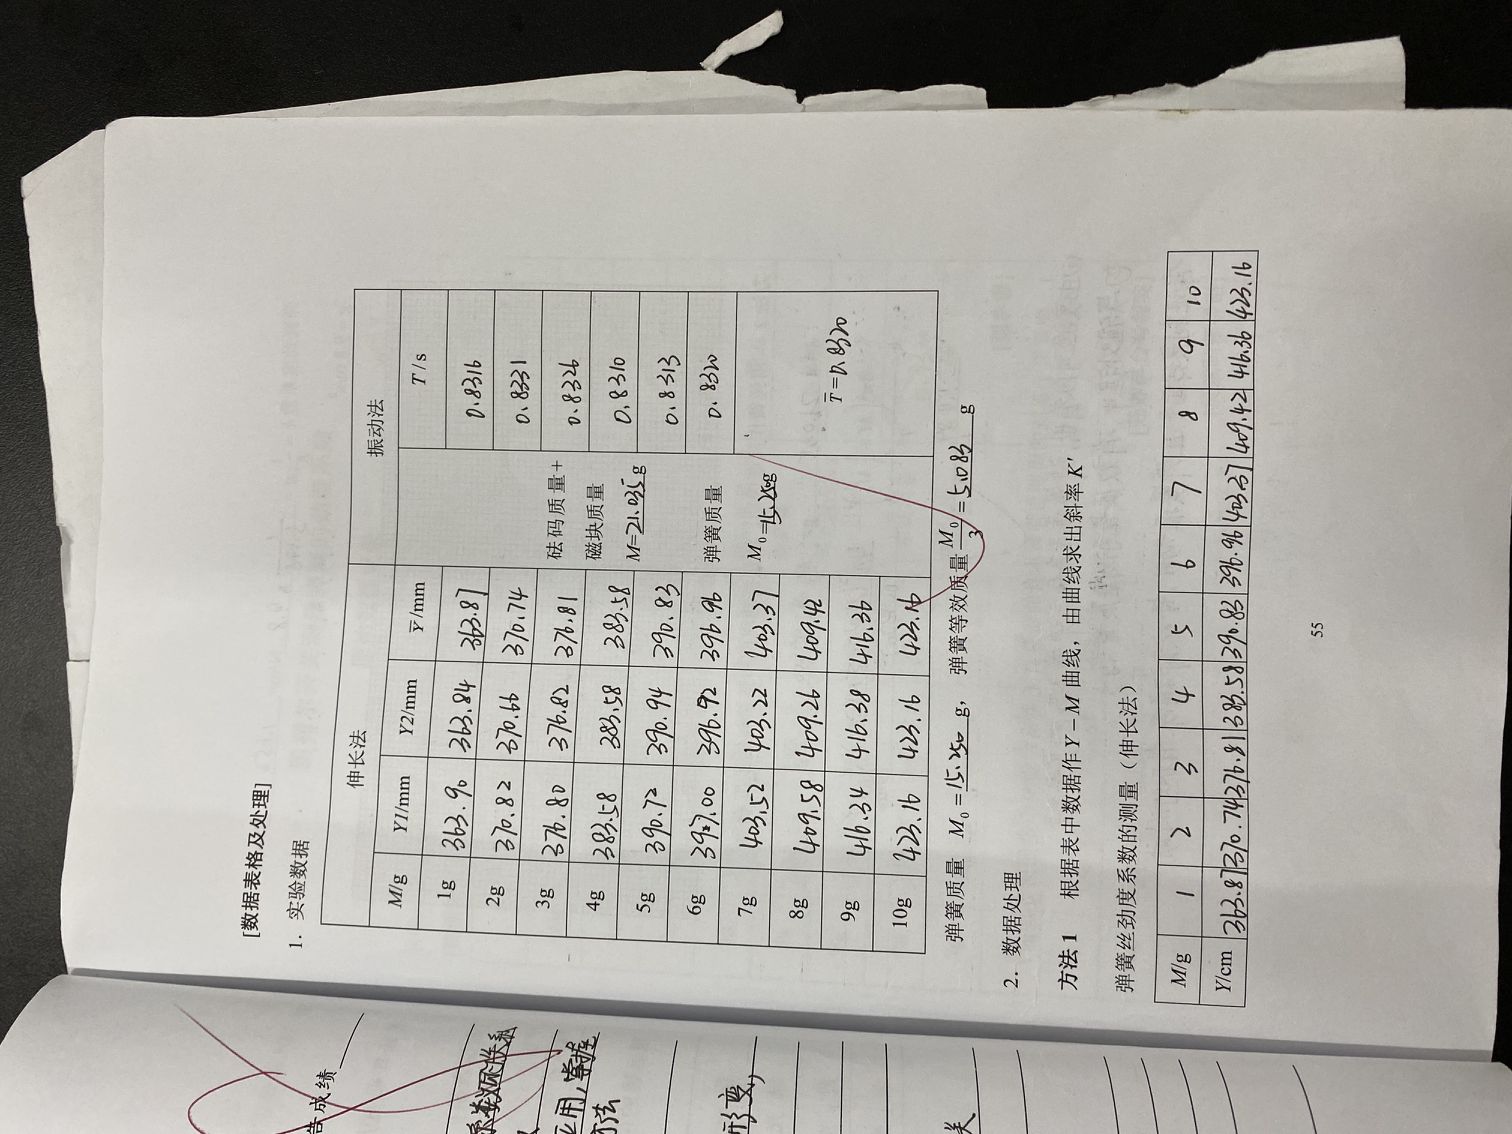 告成绩
应用,掌握
方法
形变,
关
[数据表格及处理]
1. 实验数据
伸长法 振动法
M/g Y1/mm Y2/mm Y̅/mm T/s
1g 363.90 363.84 363.87 0.8316
2g 370.82 370.66 370.74 0.8331
3g 376.80 376.82 376.81 0.8326
4g 383.58 383.58 383.58 0.8310
5g 390.72 390.94 390.83 0.8313
6g 397.00 396.92 396.96 0.8320
7g 403.52 403.22 403.37
8g 409.58 409.26 409.42
9g 416.34 416.38 416.36
10g 423.16 423.16 423.16
砝码质量+
磁块质量
M=21.035g
弹簧质量
M₀=15.250g
T̅=0.8320
弹簧质量 M₀=15.250 g, 弹簧等效质量 M₀/3=5.083 g
2. 数据处理
方法1 根据表中数据作Y-M曲线,由曲线求出斜率K′
弹簧丝劲度系数的测量(伸长法)
M/g 1 2 3 4 5 6 7 8 9 10
Y/cm 363.87 370.74 376.81 383.58 390.83 396.96 403.37 409.42 416.36 423.16
55